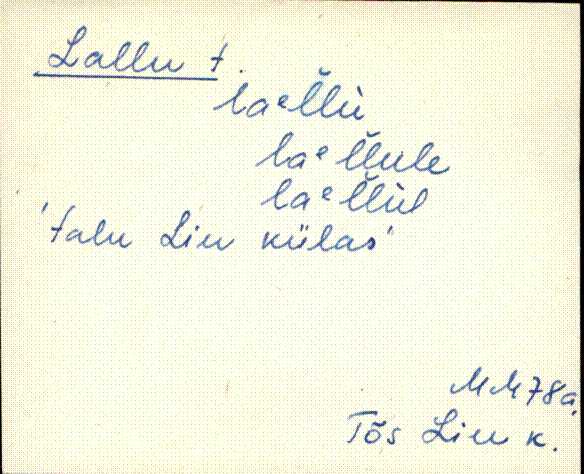 Lallu t.
laᵉl̆l̆ù
laᵉl̆l̆ule
laᵉl̆l̆ùl
'talu Liu külas'
MM78a.
Tõs Liu k.